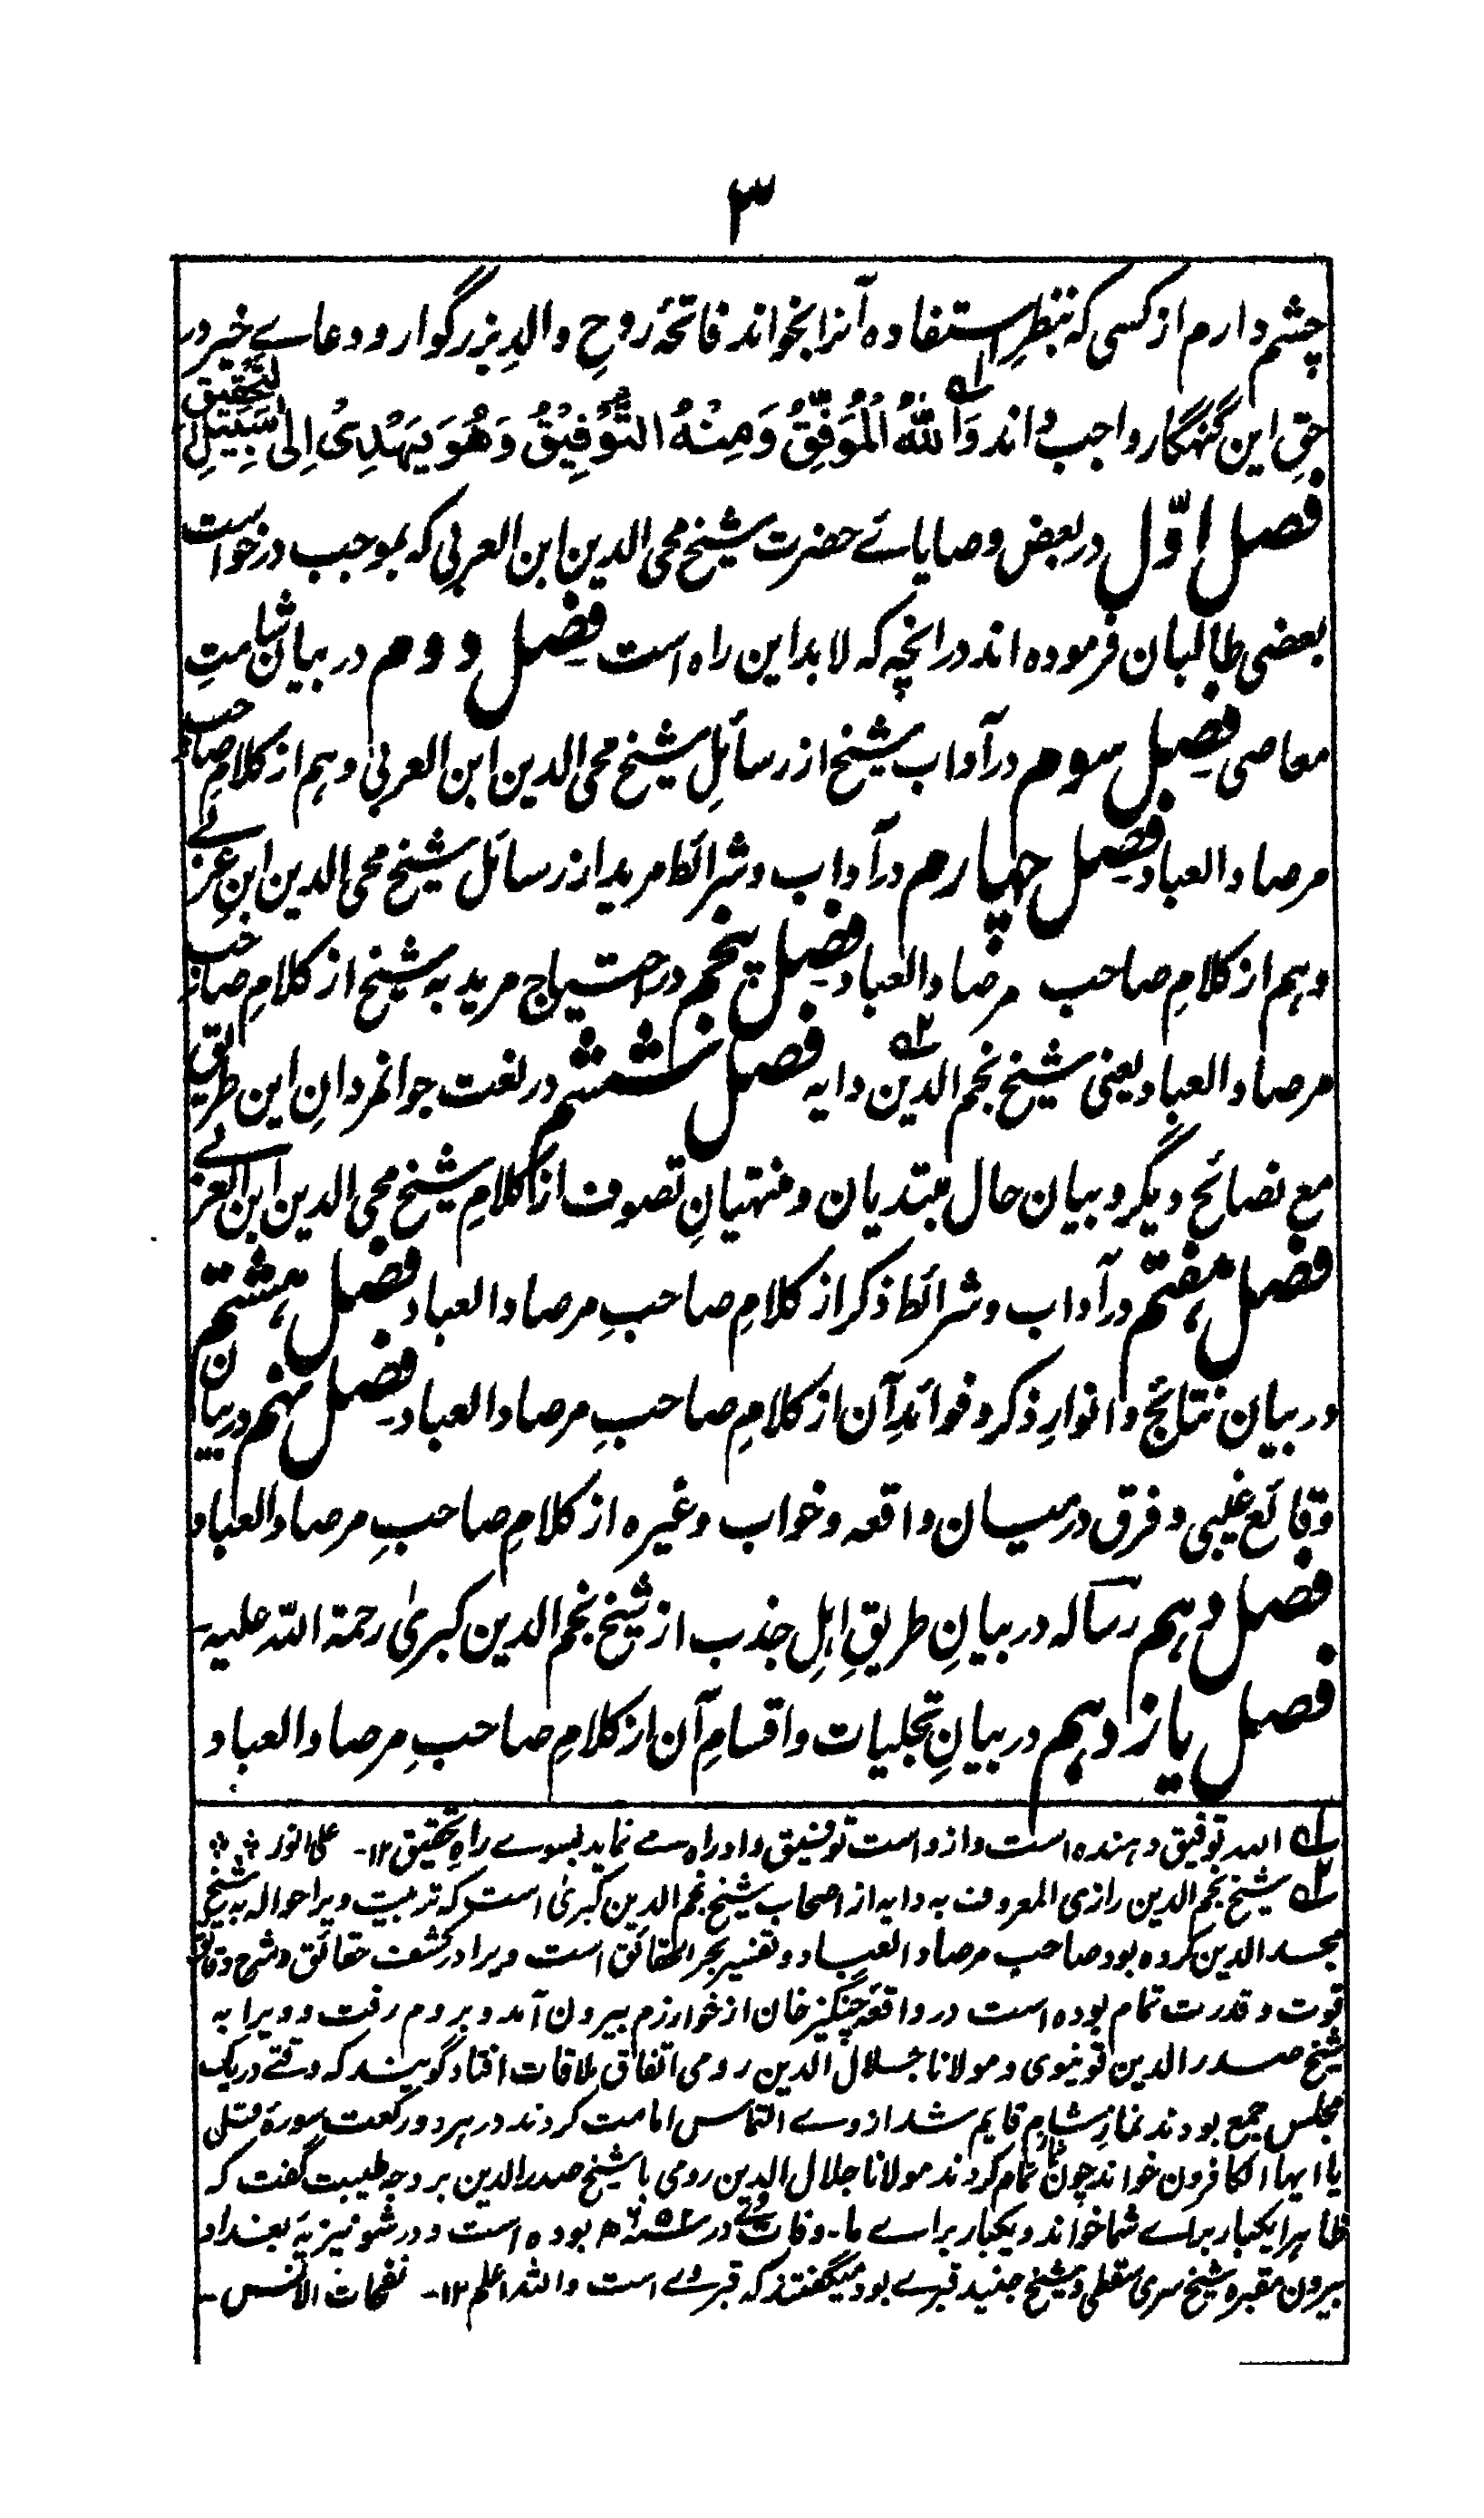 ۳
چشم دارم از کسی که بنظرِ استفاده آنرا بخواند فاتحۂ روحِ والدِ بزرگوار و دعاے خیر در
حقِ این گنہگار واجب داند وَاللهُ الْمُوَفِّقُ وَمِنْهُ التَّوْفِيْقُ وَهُوَ يَهْدِیْ اِلیٰ سَبِيْلِ التَّحْقِيْقِ
فصل اوّل در بعض وصایاے حضرت شیخ محی الدین ابن العربی کہ بموجب درخواست
بعضی طالبان فرمودہ اند در انچہ کہ لابد این راہ است فصل دوم در بیان شامتِ
معاصی فصل سوم در آداب شیخ از رسائلِ شیخ محی الدین ابن العربی و ہم از کلامِ صاحب
مرصاد العباد فصل چہارم در آداب و شرائط مرید از رسائل شیخ محی الدین ابن عربے
و ہم از کلامِ صاحب مرصاد العباد فصل پنجم در احتیاج مرید بہ شیخ از کلامِ صاحب
مرصاد العباد یعنی شیخ نجم الدین دایہ ۲؎ فصل ششم در نعت جوانمردانِ این طریق
مع نصائح دیگر و بیان حال مبتدیان و منتہیانِ تصوف از کلامِ شیخ محی الدین ابن العربے
فصل ہفتم در آداب و شرائط ذکر از کلامِ صاحبِ مرصاد العباد فصل ہشتم
در بیان نتائج و انوارِ ذکر و فوائدِ آن از کلامِ صاحبِ مرصاد العباد فصل نہم در بیان
وقائع غیبی و فرق درمیان واقعہ و خواب وغیرہ از کلامِ صاحبِ مرصاد العباد
فصل دہم رسالہ در بیانِ طریقِ اہلِ جذب از شیخ نجم الدین کبریٰ رحمۃ اللہ علیہ۔
فصل یازدہم در بیانِ تجلیات و اقسامِ آن از کلامِ صاحبِ مرصاد العباد
۱؎ اللہ توفیق دہندہ است و از و است توفیق و او راہ مے نماید بسوے راہِ تحقیق ۱۲۔ علی انور
۲؎ شیخ نجم الدین رازی المعروف بہ دایہ از اصحاب شیخ نجم الدین کبریٰ است کہ تربیت ویرا حوالہ بہ شیخ
مجد الدین کردہ بود صاحب مرصاد العباد و تفسیر بحر الحقائق است ویرا در کشف حقائق و شرح دقائق
قوت و قدرت تمام بودہ است در واقعۂ چنگیز خان از خوارزم بیرون آمد و بروم رفت و ویرا بہ
شیخ صدر الدین قونیوی و مولانا جلال الدین رومی اتفاق ملاقات افتاد گویند کہ وقتے در یک
مجلس جمع بودند نمازِ شام قایم شد از وے التماس امامت کردند در ہر دو رکعت سورۂ قل
یا ایہا الکافرون خواند چون نماز تمام کردند مولانا جلال الدین رومی با شیخ صدر الدین بر وجہ طیبت گفت کہ
ظاہرا یکبار براے شما خواند و یکبار براے ما۔ وفات وے در ۶۵۴ھ بودہ است و در شونیزیۂ بغداد
بیرون مقبرہ شیخ سری سقطی و شیخ جنید قبرے بود میگفتند کہ قبر وے است واللہ اعلم ۱۲۔ نفحات الانس۔